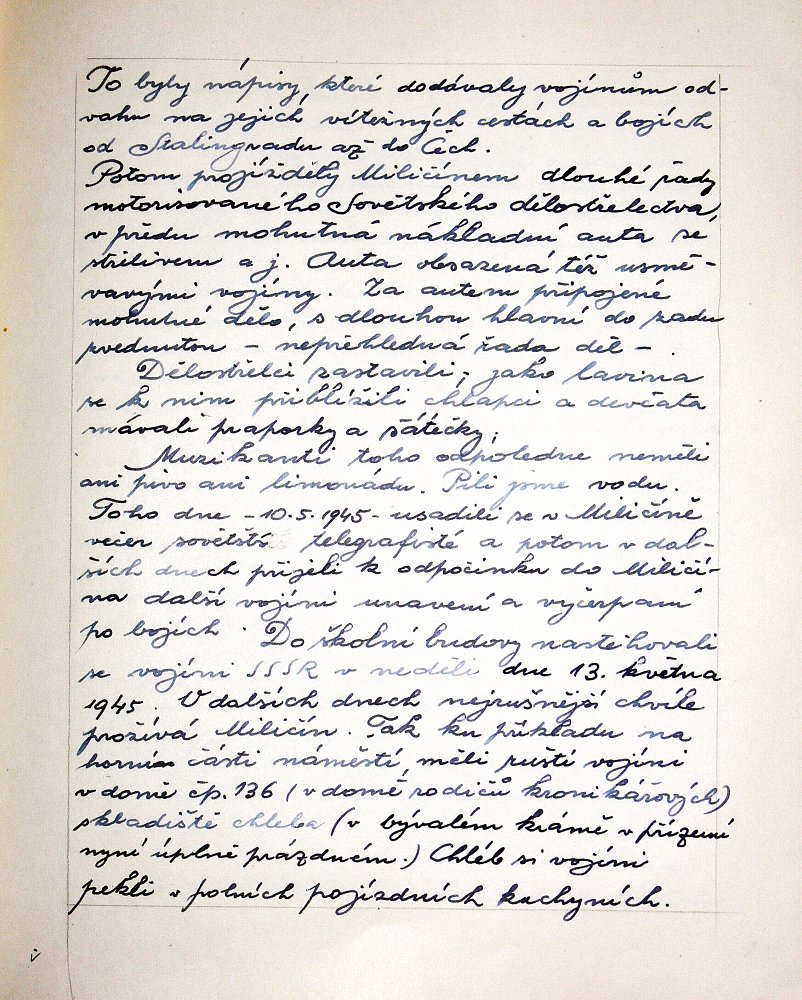 To byly nápisy, které dodávaly vojínům od-
vahu na jejich vítězných cestách a bojích
od Stalingradu až do Čech.
Potom projížděly Miličínem dlouhé řady
motorisovaného Sovětského dělostřelectva,
v předu mohutná nákladní auta se
střelivem a j. Auta obsazená též usmě-
vavými vojíny. Za autem připojené
mohutné dělo, s dlouhou hlavní do zadu
zvednutou - nepřehledná řada děl -
Dělostřelci zastavili, jako lavina
se k nim přiblížili chlapci a devčata
mávali praporky a šátečky,
Muzikanti toho odpoledne neměli
ani pivo ani limonádu. Pili jsme vodu.
Toho dne - 10.5.1945 - usadili se v Miličíně
večer sovětští telegrafisté a potom v dal-
ších dnech přijeli k odpočinku do Miličí-
na další vojíni unavení a vyčerpaní
po bojích. Do školní budovy nastěhovali
se vojíni SSSR v neděli dne 13. května
1945. V dalších dnech nejrušnější chvíle
prožívá Miličín. Tak ku příkladu na
horním části náměstí, měli ruští vojíni
v domě čp. 136 (v domě rodičů kronikářových)
skladiště chleba (v bývalém krámě v přízemí
nyní úplně prázdném.) Chléb si vojíni
pekli v polních pojízdních kuchyních.
v